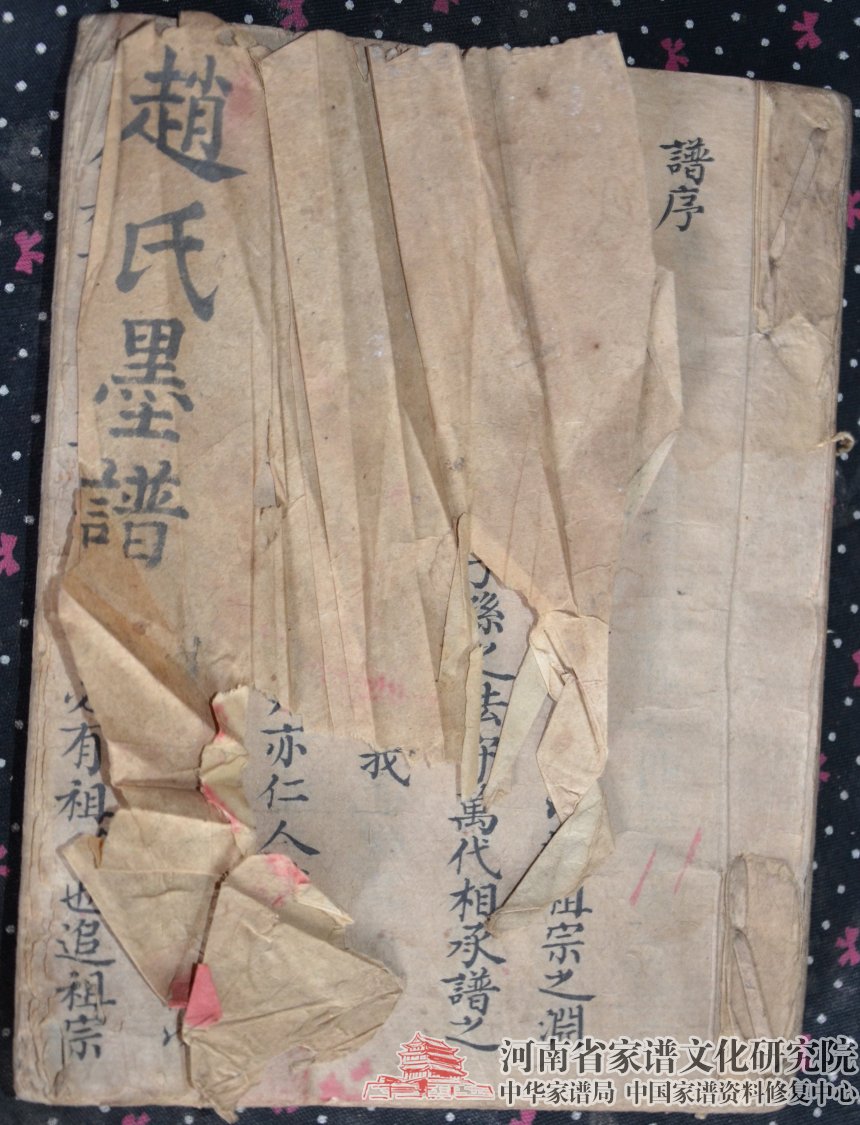 趙氏墨譜
譜序
祖宗之淵
孫之法
萬代相承譜之
我
亦仁人
有祖
也追祖宗
河南省家谱文化研究院
中华家谱局 中国家谱资料修复中心